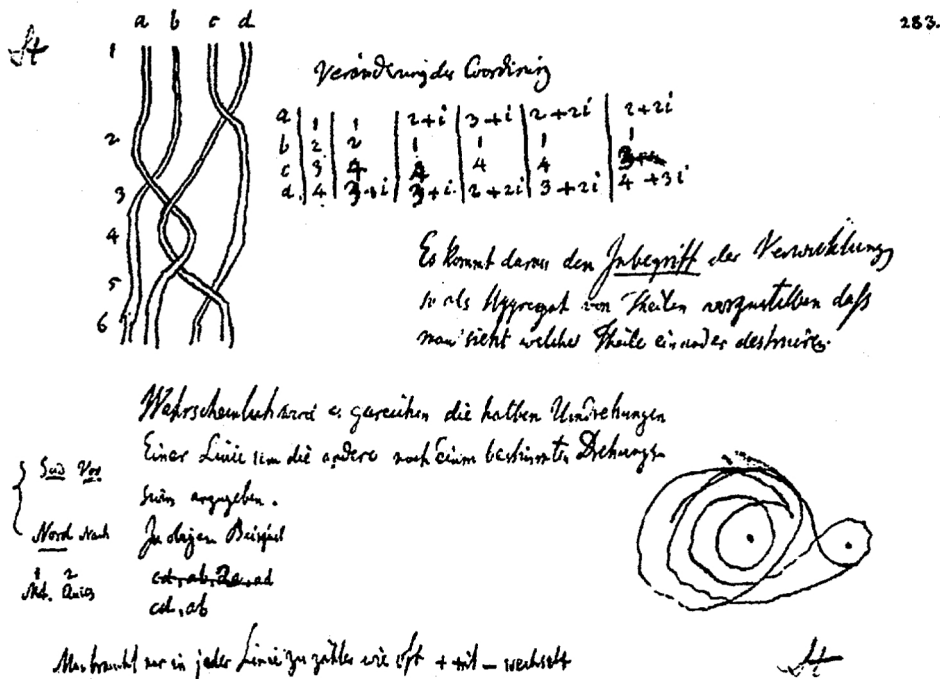 283.
a b c d
1
2
3
4
5
6
Veränderung der Coordinirung
a | 1 | 1 | 2+i | 3+i | 2+2i | 2+2i
b | 2 | 2 | 1 | 1 | 1 | 1
c | 3 | 4 | 4 | 4 | 4 |
d. | 4 | 3+i | 3+i. | 2+2i | 3+2i | 4+3i
Es kommt darauf den Inbegriff der Verwicklung
so als Aggregat von Theilen vorzustellen daß
man sieht welche Theile einander destruiren.
es gereichen die halben Umdrehungen
Einer Linie um die andere nach einem bestimmten Drehungs
sinn anzugeben.
Süd Vor
Nord Nach
In obigen Beispiel
1 2
cd, ab, ad
cd, ab
Man braucht nur in jeder Linie zu zählen wie oft + mit - wechselt